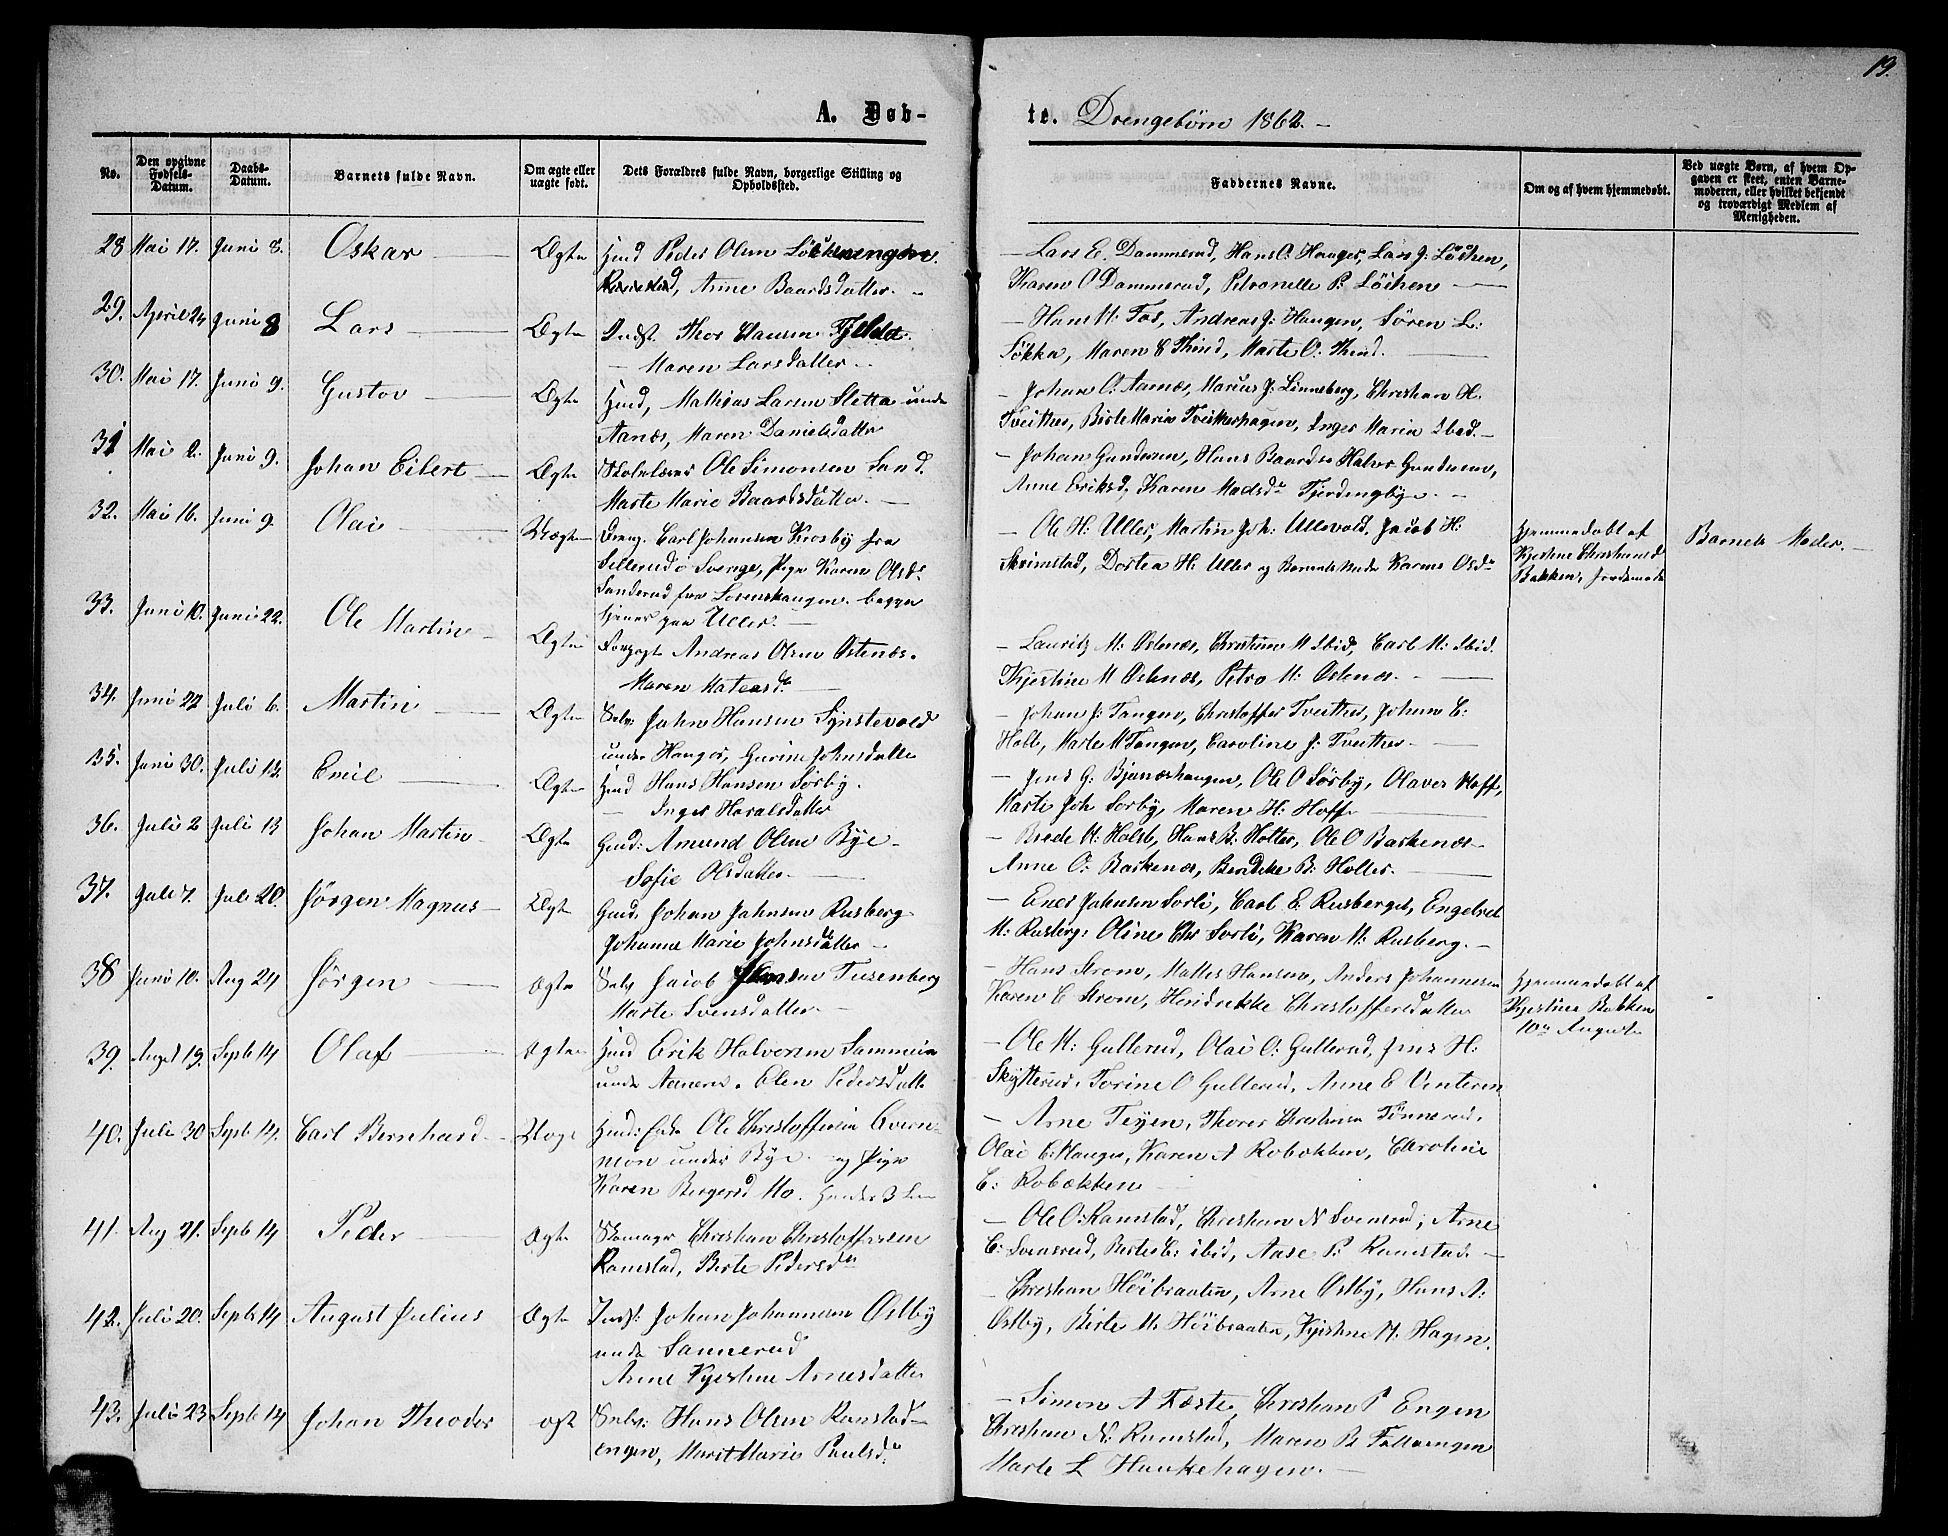 19.
A. Døb-
te. Drengebørn 1862. -
No.
Den opgivne Fødsels-Datum.
Daabs-Datum.
Barnets fulde Navn.
Om ægte eller uægte født.
Dets Forældres fulde Navn, borgerlige Stilling og Opholdssted.
Faddernes Navne.
Om og af hvem hjemmedøbt.
Ved uægte Børn, af hvem Opgaven er skeet, enten Barnemoderen, eller hvilket bekjendt og troværdigt Medlem af Menigheden.
28 Mai 17. Juni 8. Oskar Ægte Huusd Peder Olsen
Anne Baardsdatter.
- Lars E. Dammerud, Hans O. Hanger, Lars J. Löchen,
Karen O Dammerud, Petronelle P. Löchen
29. April 24 Juni 8 Lars Ægte Indst. Thor Clausen Fjeld
Maren Larsdatter
- Hans H: Fos, Andreas J: Haugen, Sören L:
Søkka, Maren E Thind, Marte O. Thind.
30. Mai 17. Juni 9. Gustav Ægte Huusd, Mathias Larsen Sletta under
Aanæs, Maren Danielsdatter
- Johan O: Aanæs, Marius J: Linneberg, Christian H.
Tveither, Birte Marie Tveitherhagen, Inger Marie Ibid.
31 Mai 2. Juni 9. Johan Eilert Ægte Skolelærer Ole Simonsen Sand.
Marte Marie Baardsdatter.
- Johan Gundersen, Hans Baards Halvor Gundersen,
Anne Eriksd, Karen Madsdr Fjerdingbye.
32. Mai 16. Juni 9. Olai Uægte Dreng. Carl Johansen Krosby fra
Sillerud i Sverige, Pige Karen Olsdr
Sanderud fra Lorenshaugen. begge
tjener paa Uller.
- Ole H: Uller, Martin Joh: Ullevold, Jacob H:
Skrimstad, Dortea H: Uller og Barnets Moder Karen Olsdr
Hjemmedøbt af
Kjestine Christiansd
Bakken, Jordemoder
Barnets Moder.
33. Juni 10. Juni 22. Ole Martin Ægte Forpagt Andreas Olsen Ostenæs.
Maren Mateasdr
- Lauritz M: Ostenæs, Christian M Ibid, Carl M: Ibid.
Kjestine M Ostenæs, Petro M: Ostenæs.
34. Juni 22 Juli 6. Martin Ægte Selv: John Hansen Synstevold
under Hanger, Gurine Johnsdatter
- Johan J: Tangen, Christoffer Tveither, Johan E:
Holt, Marte M Tangen, Caroline J: Tveither.
35. Juni 30. Juli 13. Emil Ægte Huusd Hans Hansen Sørby.
Inger Haralsdatter
- Jens G. Bjanæshaugen, Ole O Sörby, Olaves Hoff,
Marte Joh Sörby, Maren H: Hoff
36. Juli 2 Juli 13 Johan Martin Ægte Gaard: Amund Olsen Bye
Sofie Olsdatter.
- Brede H: Holsb, Hans B: Holter, Ole O Baskenæs
Anne O: Baskenæs, Bendikke B: Holter.
37. Juli 7. Juli 20. Jörgen Magnus Ægte Gaard. Johan Johnsen Rusberg
Johanne Marie Johnsdatter
- Ener Johnsen Sorli, Carl E. Rusberget, Engebret
M: Rusberg, Oline Chr Sorli, Karen M: Rusberg.
38 Juni 10. Aug 24 Jörgen Ægte Selv Jacob Jensen Tusenberg
Marte Svensdatter
- Hans Strøm, Mattes Hansen, Anders Johannesen
Karen E Strøm, Hendrikke Christoffersdatter
Hjemmedøbt af
Kjestine Bakken
10de August
39. Augst 19. Septb 14 Olaf Ægte Huusd Erik Halvorsen
under Aanæs. Elen Pedersdatter
- Ole H: Gullerud, Olai O: Gullerud, Jens H:
Skytterud, Torine O Gullerud, Anne E Venteren
40. Juli 30 Septb 14. Carl Bernhard Uægt Huusd: Enke Ole Christoffersen
moen under Bye. og Pige
Karen Bergersd Mo. Hendes 3
- Arne Teyen, Thorer Christian Tönnerud,
Olai C: Hanger, Karen A Robækken, Caroline
C: Robækken
41. Aug 21. Septb 14 Peder Ægte Skomager Christian Christoffersen
Ramstad, Berte Pedersdtr
- Ole O: Ramstad, Christian N Svensrud, Arne
C: Svensrud, Berte C: ibid, Aase P: Ramstad.
42. Juli 20. Septb 14 August Julius Ægte Indst: Johan Johannesen Østby
under Sannerud
Anne Kjestine Arnesdatter
- Christian Höibraaten, Arne Ostby, Hans A:
Ostby, Birte M. Höibraaten, Kjestine H. Hagen.
43. Juli 23 Septb 14 Johan Theodor Ægt Selv: Hans Olsen Ramstad-
engen, Marit Marie Paulsdr
- Simon A Fæste, Christian P Engen
Christian N: Ramstad, Maren B
Marte L Haukehagen.